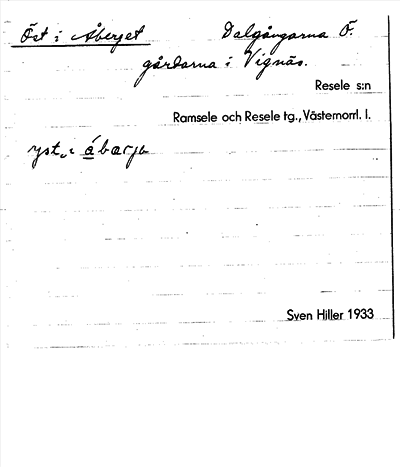 Öst i Åberget Dalgångarna Ö.
gårdarna i Vignäs.
Resele s:n
Ramsele och Resele tg., Västernorrl. l.
Sven Hiller 1933